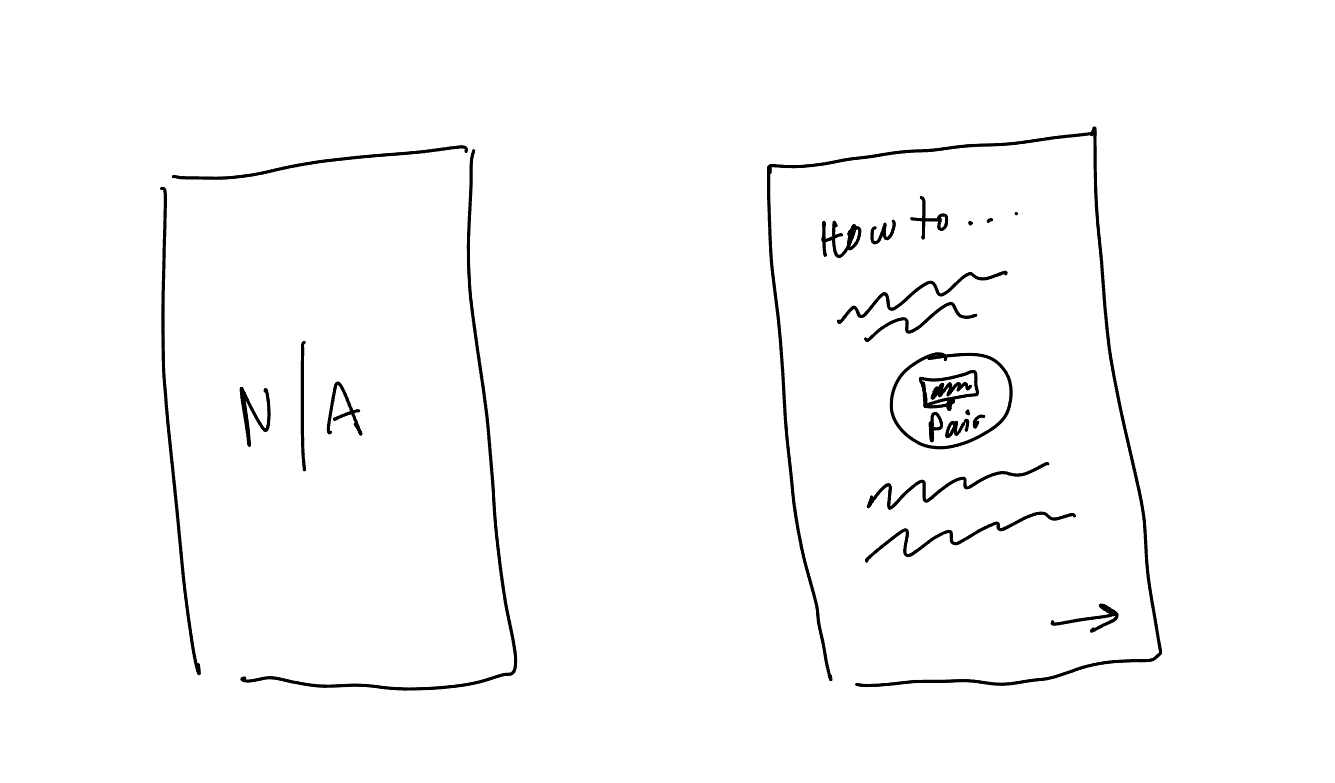 N/A
How to...
Pair